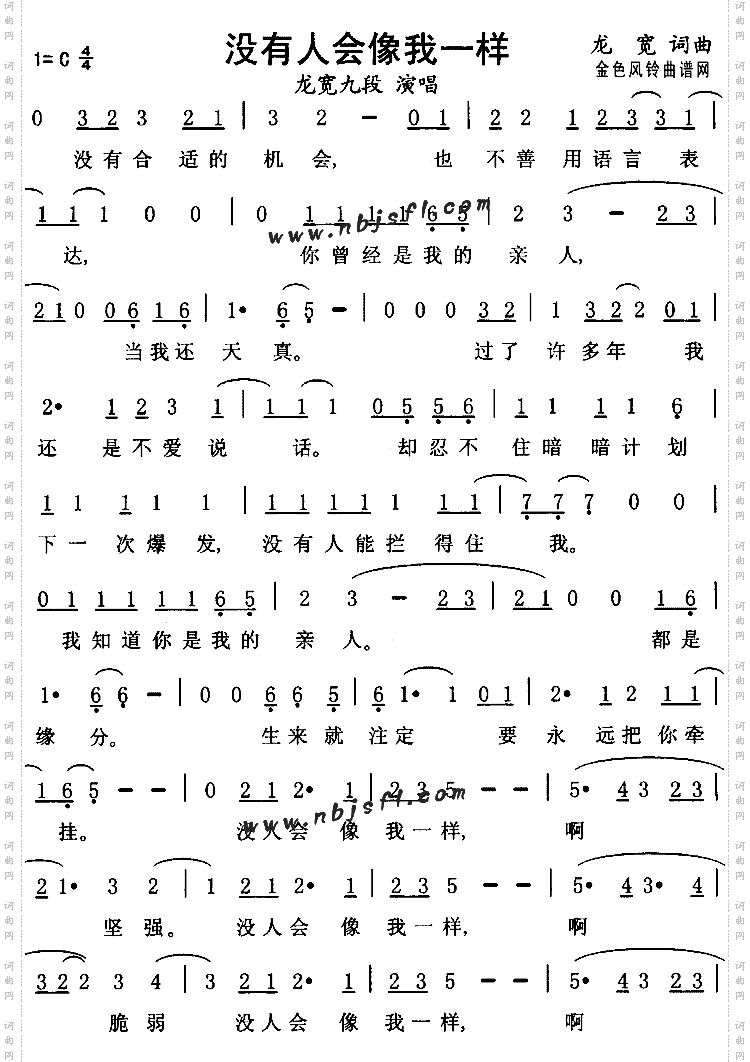 没有人会像我一样
1=C 4/4
龙 宽 词曲
金色风铃曲谱网
龙宽九段 演唱
0 3 2 3 2 1 | 3 2 - 0 1 | 2 2 1 2 3 3 1 |
没有合 适的 机会, 也 不善 用语言 表
1 1 1 0 0 | 0 1 1 1 1 6 5 | 2 3 - 2 3 |
www.nbjsfl.com
达, 你曾经是我的 亲 人,
2 1 0 0 6 1 6 | 1• 6 5 - | 0 0 0 3 2 | 1 3 2 2 0 1 |
当我还 天 真。 过了 许多年 我
2• 1 2 3 1 | 1 1 1 0 5 5 6 | 1 1 1 1 6 |
还 是不爱 说 话。 却忍不 住暗 暗计 划
1 1 1 1 1 | 1 1 1 1 1 1 1 | 7 7 7 0 0 |
下一 次爆 发, 没有人能拦 得住 我。
0 1 1 1 1 1 6 5 | 2 3 - 2 3 | 2 1 0 0 1 6 |
我知道你是我的 亲 人。 都是
1• 6 6 - | 0 0 6 6 5 | 6 1• 1 0 1 | 2• 1 2 1 1 |
缘 分。 生来就 注定 要 永 远把你牵
1 6 5 - - | 0 2 1 2• 1 | 2 3 5 - - | 5• 4 3 2 3 |
www.nbjsfl.com
挂。 没人会 像 我一样, 啊
2 1• 3 2 | 1 2 1 2• 1 | 2 3 5 - - | 5• 4 3• 4 |
坚 强。 没人会 像 我一样, 啊
3 2 2 3 4 | 3 2 1 2• 1 | 2 3 5 - - | 5• 4 3 2 3 |
脆 弱 没人会 像 我一样, 啊